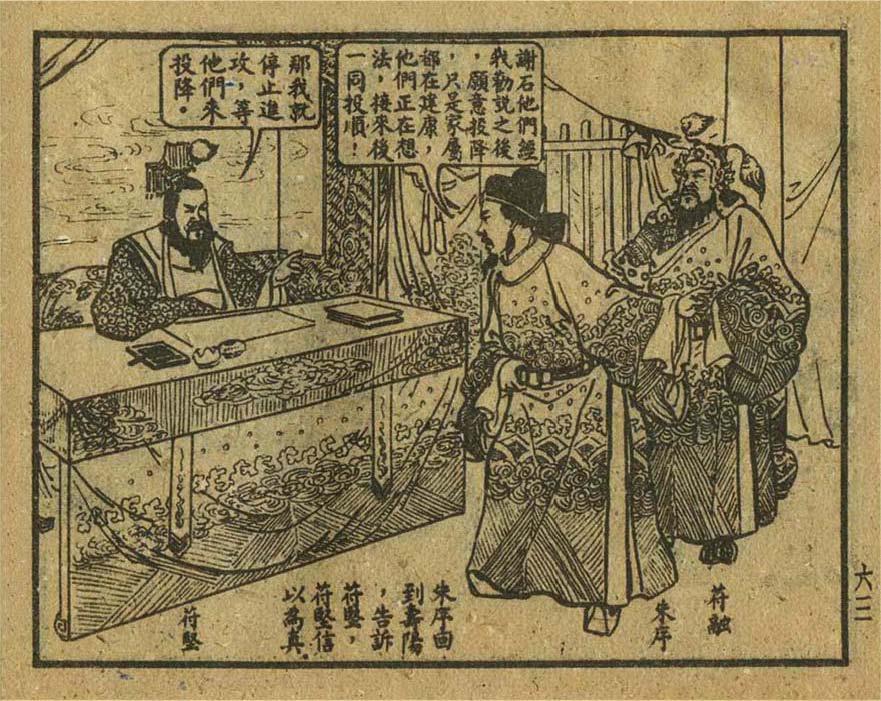 謝石他們經
我勸說之後
，願意投降
，只是家屬
都在建康，
他們正在想
法，接來後
一同投順！
那我就
停止進
攻，等
他們來
投降。
符融
朱序
朱序回
到壽陽
，告訴
符堅，
符堅信
以為真.
符堅
六三